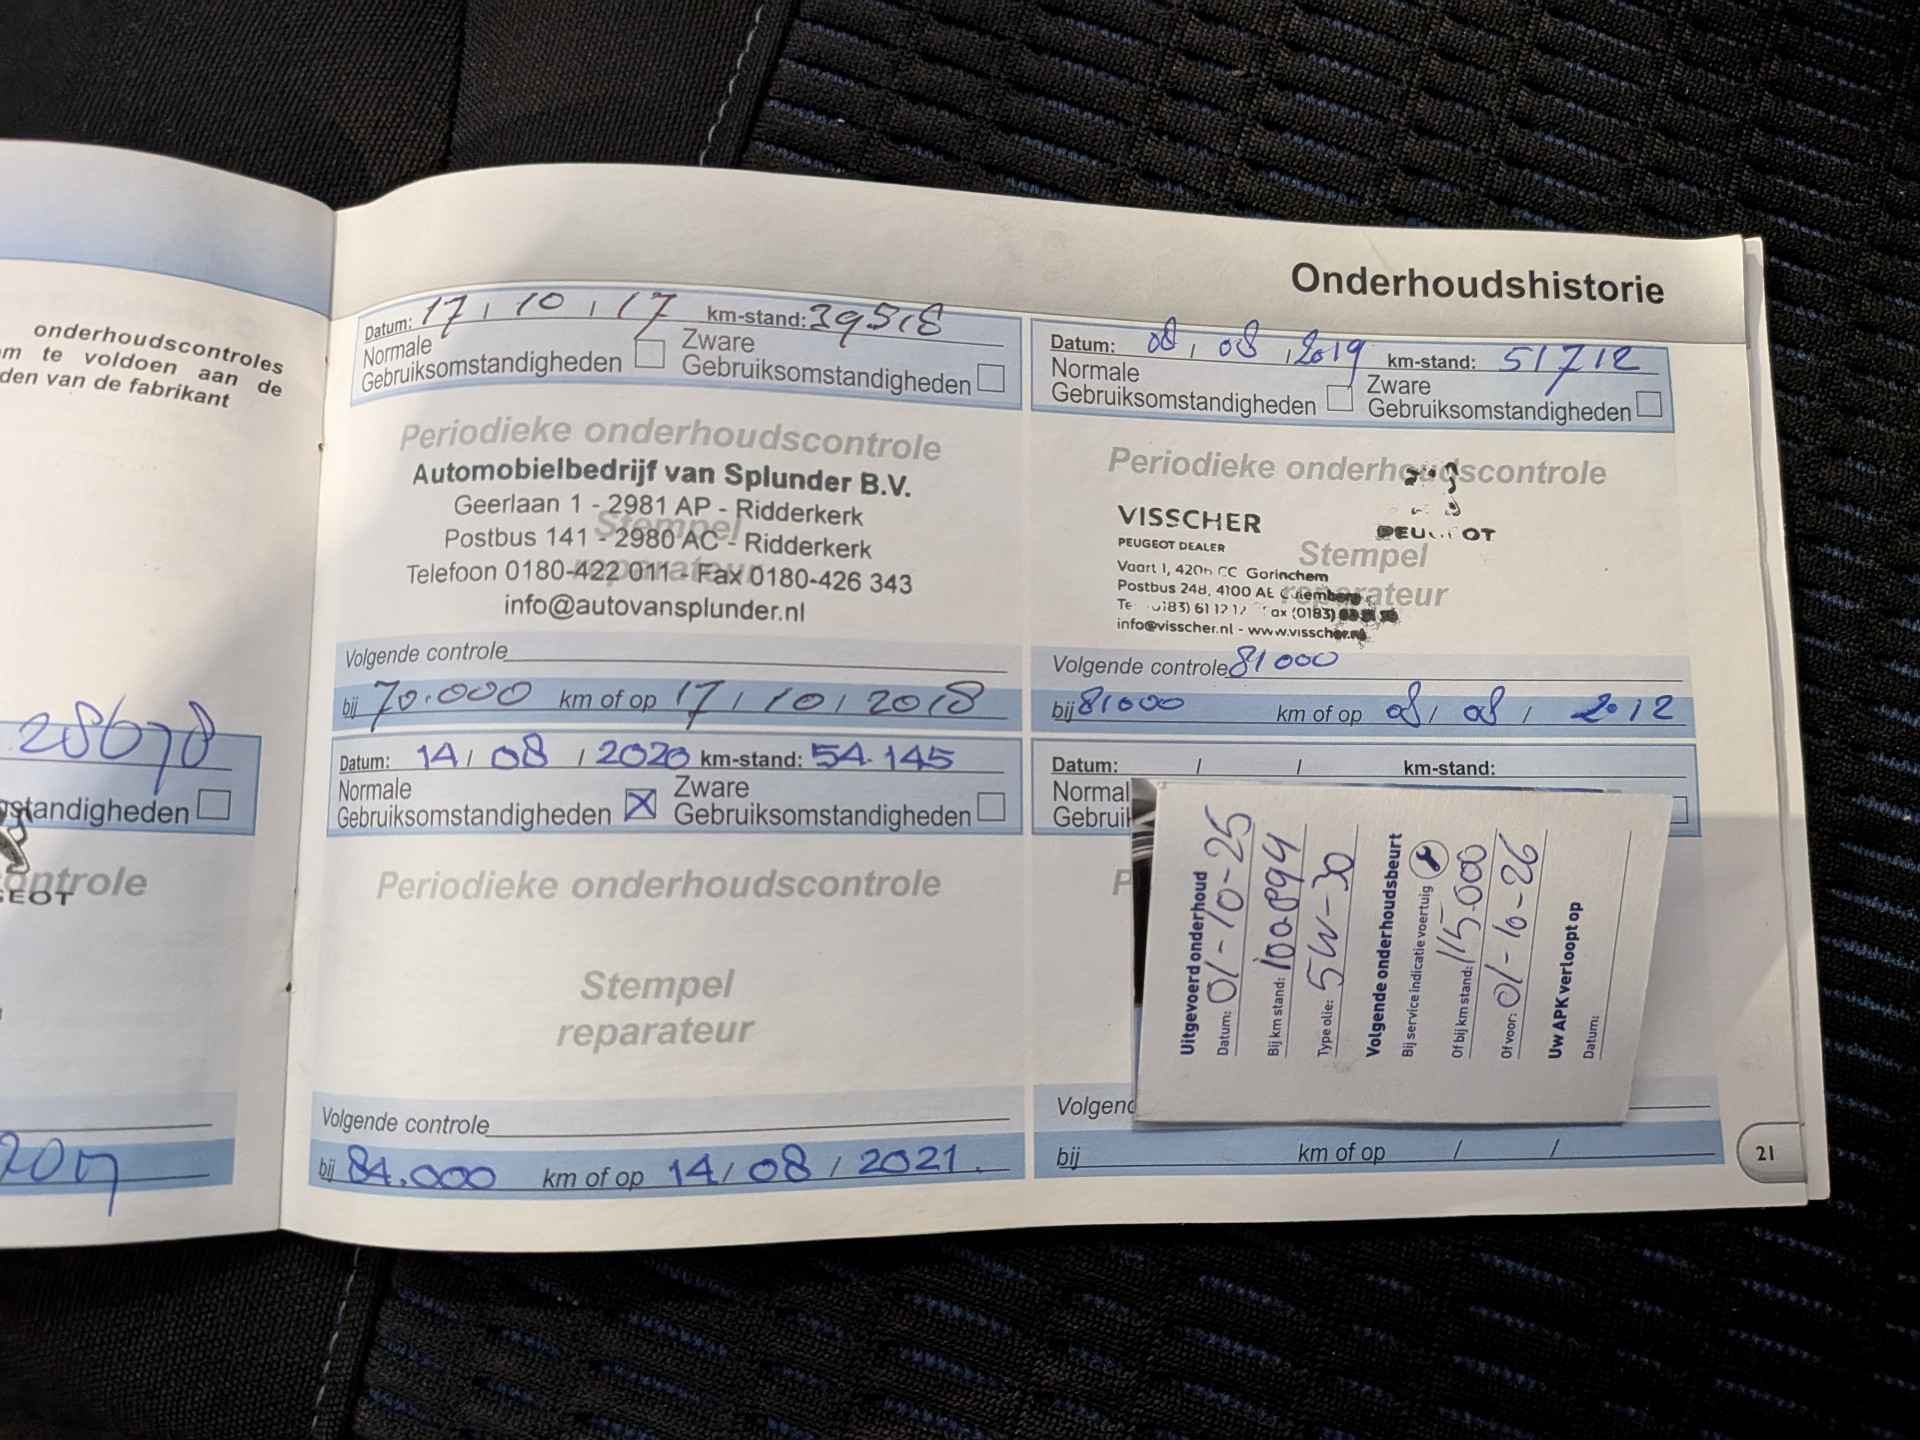 onderhoudscontroles
m te voldoen aan de
den van de fabrikant
28678
standigheden
ontrole
EOT
Onderhoudshistorie
Datum: 17 / 10 / 17 km-stand: 39518
Normale
Gebruiksomstandigheden
Zware
Gebruiksomstandigheden
Periodieke onderhoudscontrole
Automobielbedrijf van Splunder B.V.
Geerlaan 1 - 2981 AP - Ridderkerk
Stempel
Postbus 141 - 2980 AC - Ridderkerk
reparateur
Telefoon 0180-422 011 - Fax 0180-426 343
info@autovansplunder.nl
Volgende controle
bij 70.000 km of op 17 / 10 / 2018
Datum: 08 / 08 / 2019 km-stand: 51712
Normale
Gebruiksomstandigheden
Zware
Gebruiksomstandigheden
Periodieke onderhoudscontrole
VISSCHER
PEUGEOT DEALER
PEU OT
Stempel
reparateur
Vaart 1, Gorinchem
Postbus 248, 4100 AE
info@visscher.nl - www.visscher.nl
Volgende controle 81000
bij 81000 km of op 08 / 08 / 2012
Datum: 14 / 08 / 2020 km-stand: 54.145
Normale
Gebruiksomstandigheden
Zware
Gebruiksomstandigheden
Periodieke onderhoudscontrole
Stempel
reparateur
Volgende controle
bij 84.000 km of op 14 / 08 / 2021.
Datum: / / km-stand:
Normal
Gebruik
P
Uitgevoerd onderhoud
Datum: 01-10-25
Bij km stand: 100.894
Type olie: 5W-30
Volgende onderhoudsbeurt
Bij service indicatie voertuig
Of bij km stand: 115.000
Of voor: 01-10-26
Uw APK verloopt op
Datum:
Volgend
bij km of op / /
21